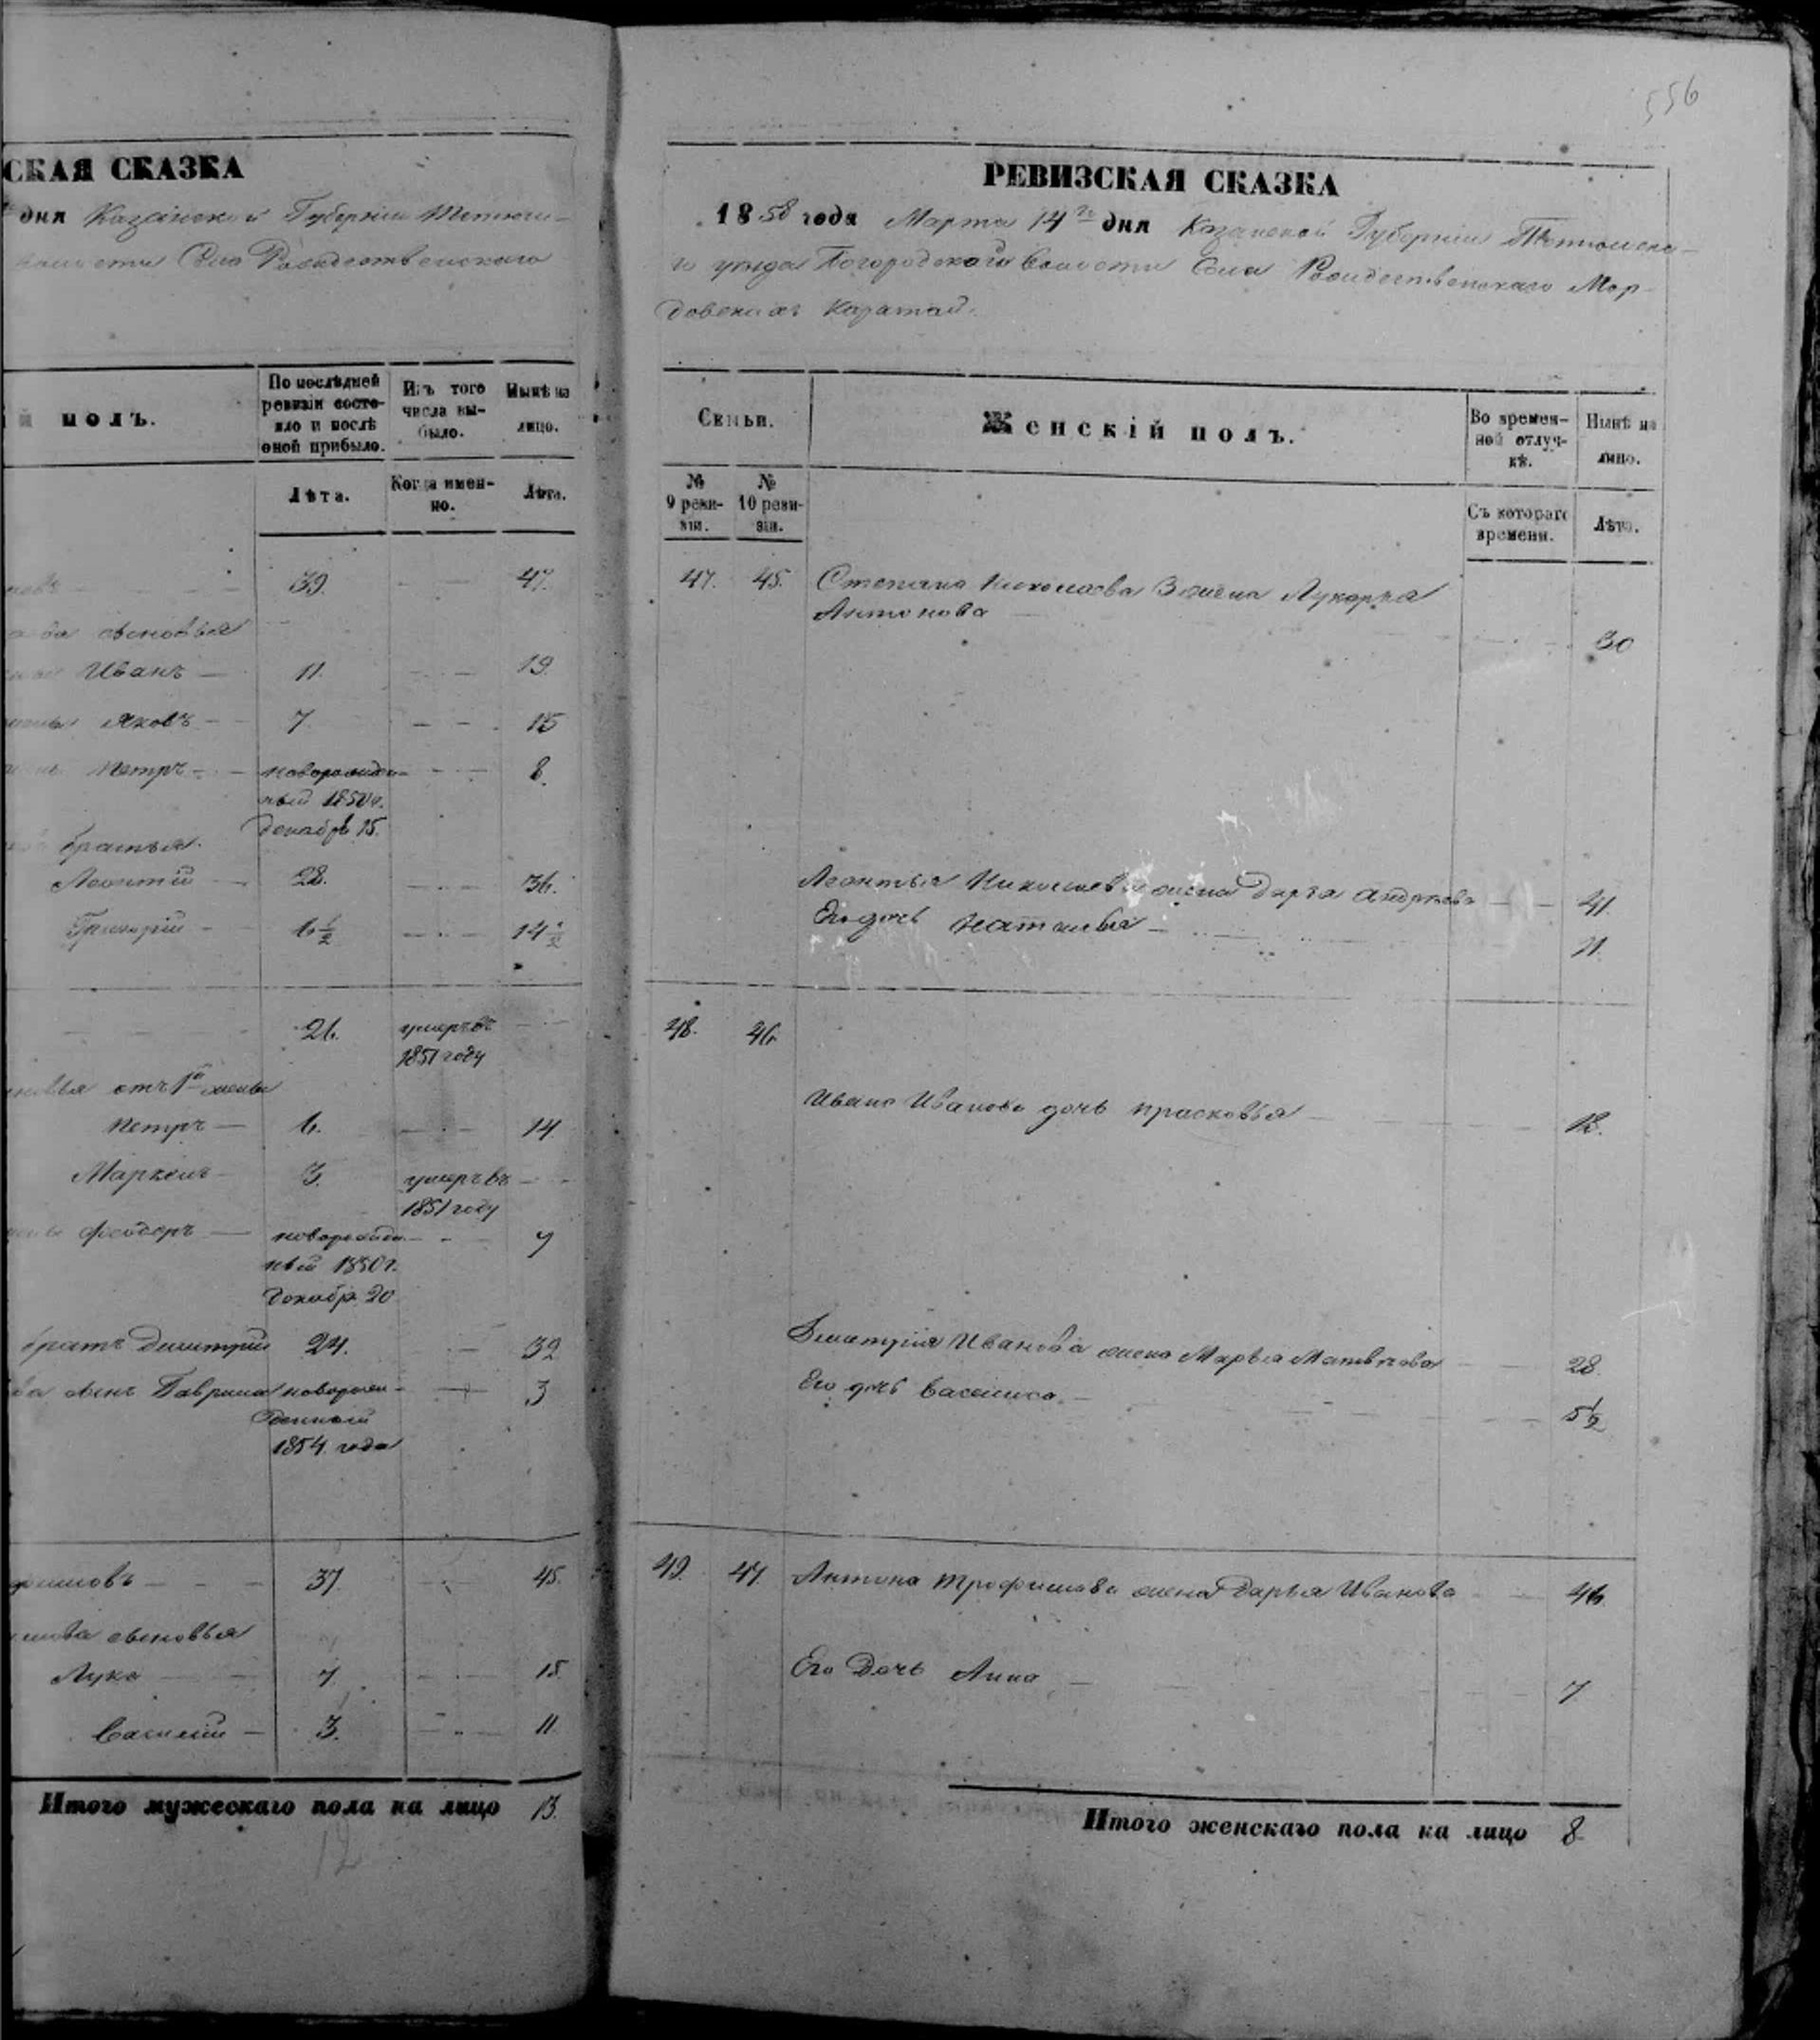 СКАЯ СКАЗКА
дня Казанской Губерніи Тетюш-
волости Села Рождественскаго
й полъ.
По послѣдней ревизіи состояло и послѣ оной прибыло.
Изъ того числа выбыло.
Нынѣ на лицо.
Лѣта.
Когда именно.
Лѣта.
39. 47.
сыновья
Иванъ 11. 19.
Яковъ 7. 15
Петръ новорожден-
ный 1850 г.
Декабря 15. 8.
братья.
Леонтій 28. 36.
Григорій 6½ 14½
26. умеръ въ
1851 году
отъ 1й жены
Петръ 6. 14
3. умеръ въ
1851 году
Феодоръ новорожден-
ный 1850 г.
Декабр. 20 7
братъ Димитрій 24. 32
сынъ Гаврила новорож-
денный
1854 года 3
37. 45.
сыновья
Лука 7 15.
Василій 3. 11.
Итого мужескаго пола на лицо 13.
12
556
РЕВИЗСКАЯ СКАЗКА
1858 года Марта 14го дня Казанской Губерніи Тетюшска-
го уѣзда Богородской волости Села Рождественскаго Мор-
довских Каратай.
Семьи.
Женскій полъ.
Во временной отлучкѣ.
Нынѣ на лицо.
№ 9 ревизіи.
№ 10 ревизіи.
Съ котораго времени.
Лѣта.
47. 45. Степана Николаева жена Лукерья
Антонова 30
Леонтья Николаева жена Дарья Андреева 41.
Его дочь Наталья 11.
48. 46.
Ивана Иванова дочь Прасковья 18.
Димитрія Иванова жена Марья Матвеева 28.
Его дочь Василиса 5½
49. 47. Антона Трофимова жена Дарья Иванова 46.
Его Дочь Анна 7
Итого женскаго пола на лицо 8